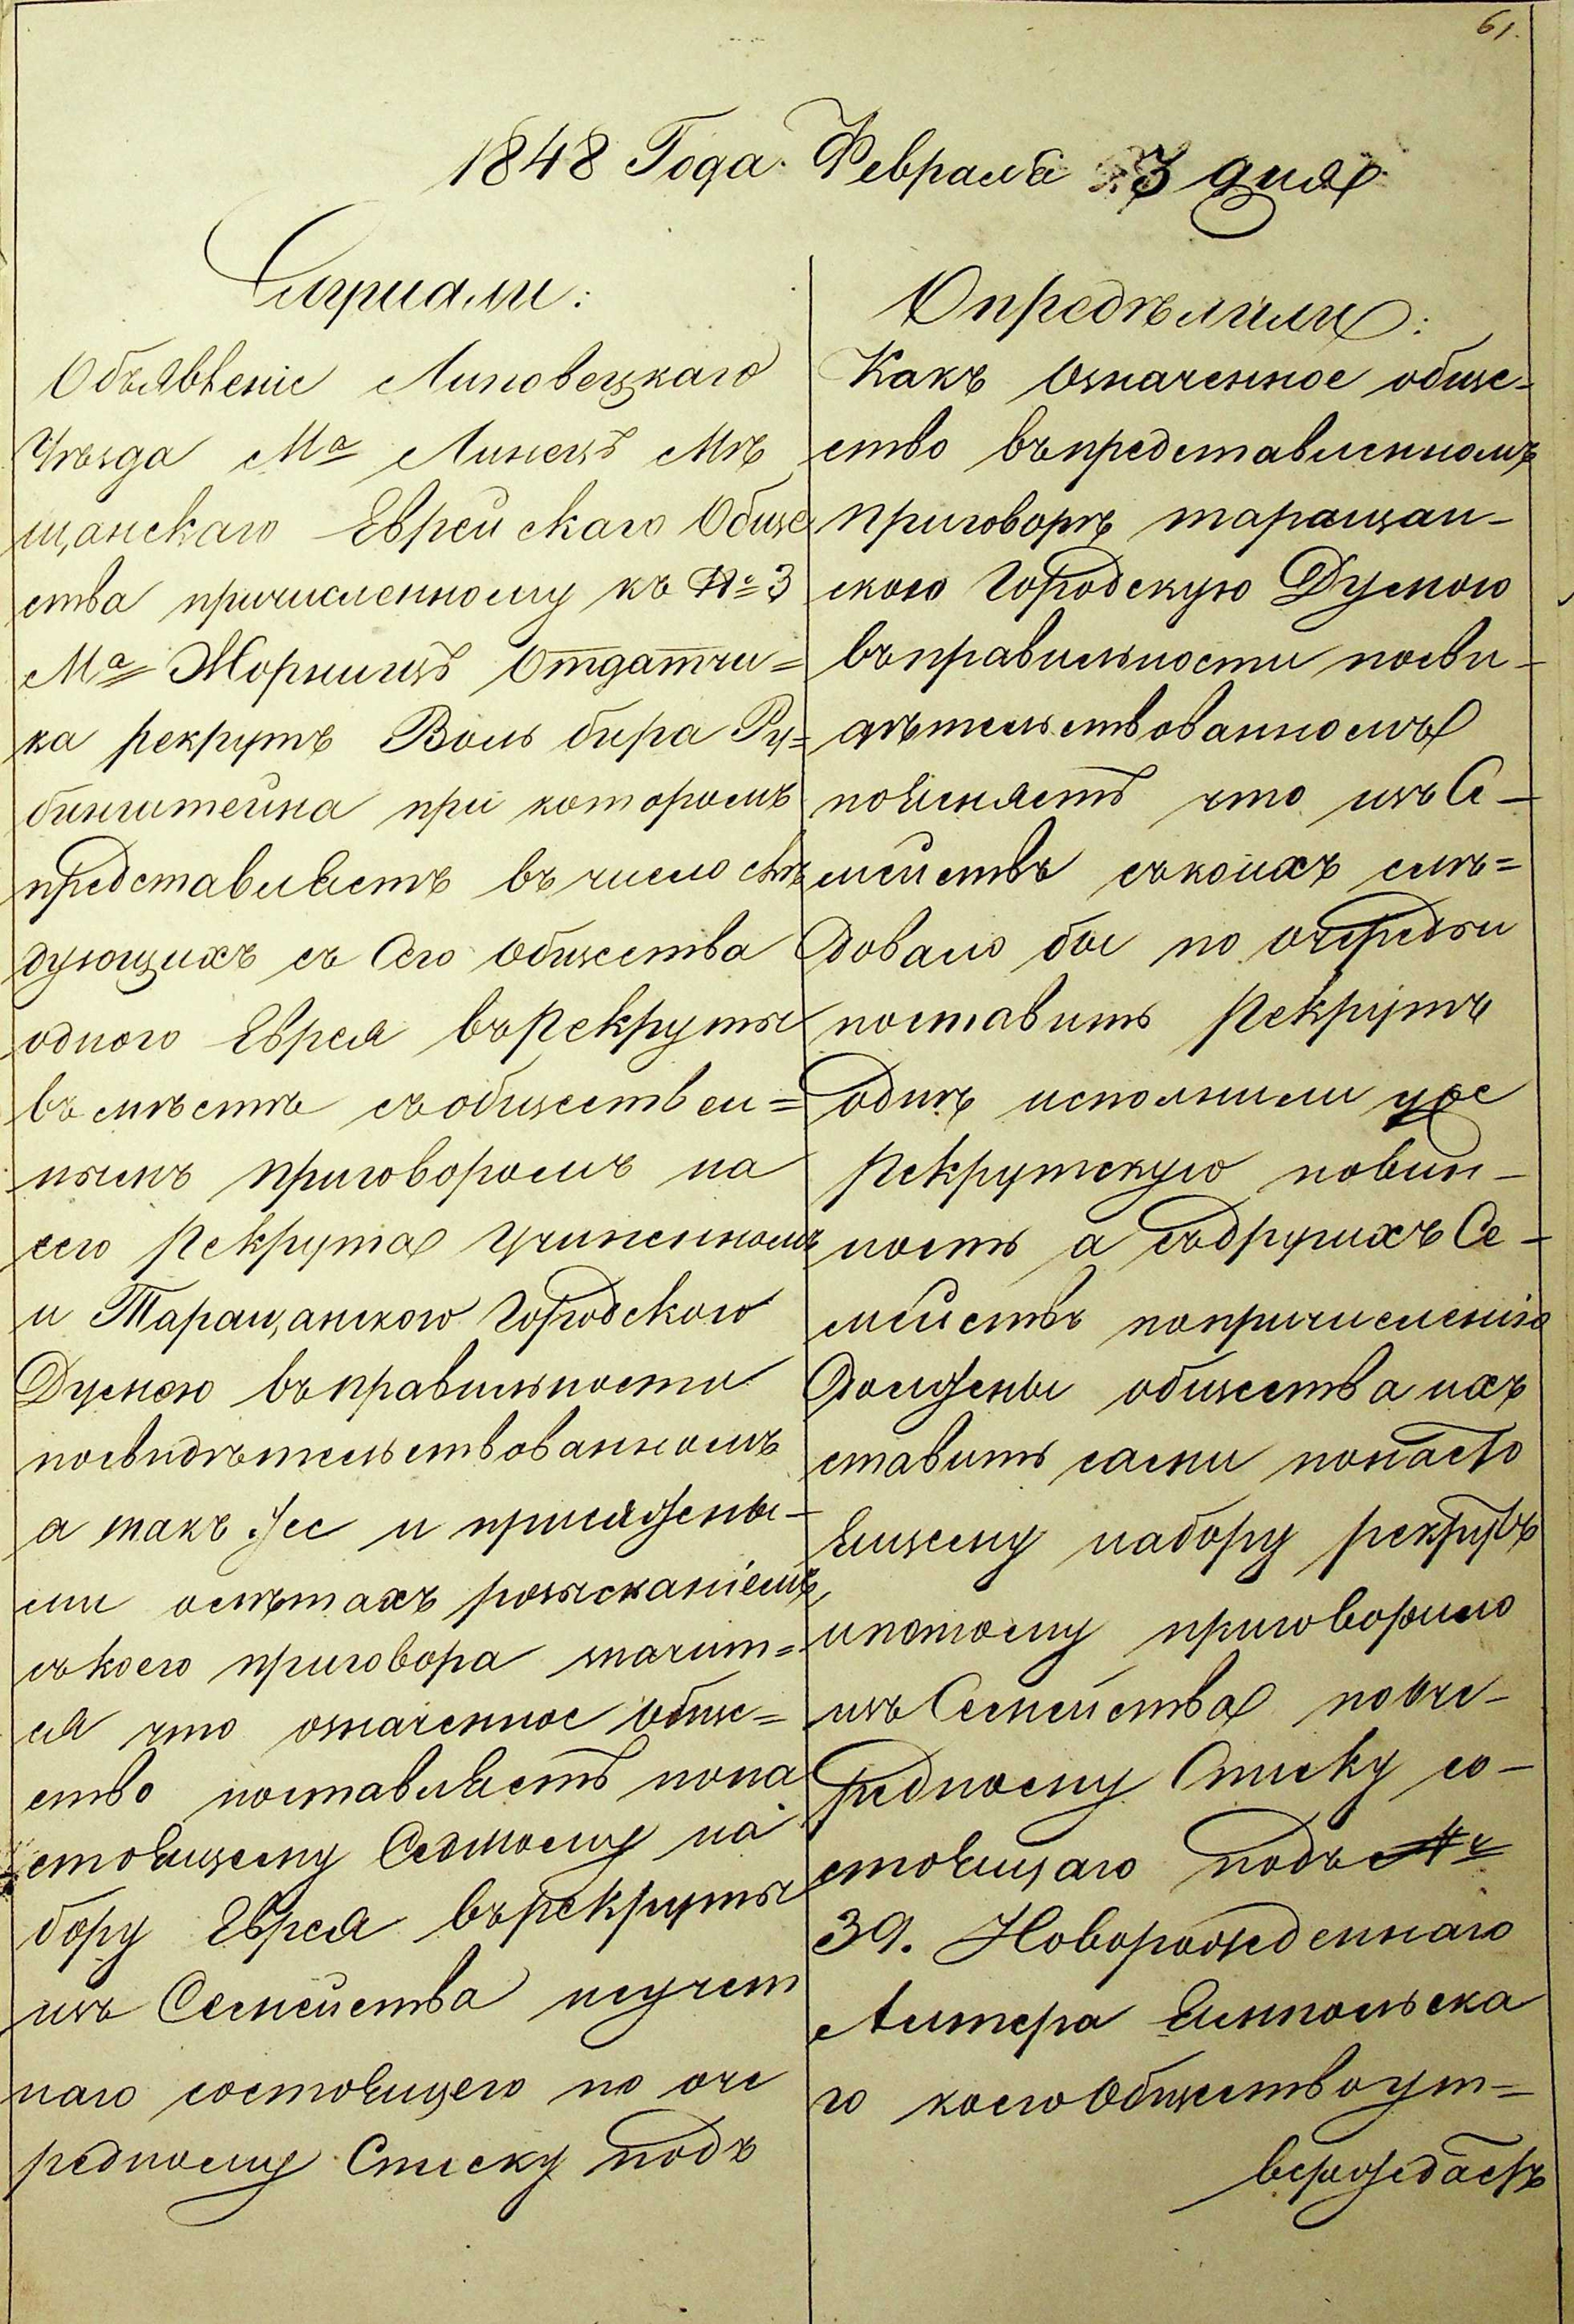 61.
1848 Года Февраля 3 дня
Слушали:
Объявленіе Липовецкаго
Уѣзда Мª Линецъ Мѣ
щанскаго Еврейскаго Обще
ства причисленному къ № 3
Мª Жорнищъ Отдатчи=
ка рекрутъ Воль бира Ру=
бинштейна при которомъ
представляетъ въ число слѣ
дующихъ съ Сего Общества
одного Еврея въ Рекруты
въ мѣстѣ съ обществен=
нымъ приговоромъ на
сего Рекрута Учиненномъ
и Таращанскою Городскою
Думою въ правильности
посвидѣтельствованномъ
а такъ же и присяжены-
ми о лѣтахъ розысканіемъ,
съ коего приговора значит=
ся что означенное Обще=
ство поставляетъ по на
стоящему Седмому на
бору Еврея въ рекруты
изъ Семейства неучет
наго состоящего по оче
редному Списку подъ
Опредѣлили:
Какъ Означенное обще-
ство въ представленномъ
приговорѣ таращан-
скою Городскую Думою
въ правильности посви-
дѣтельствованномъ
поясняетъ что изъ Се-
мействъ съ коихъ слѣ=
довало бы по очереди
поставить Рекрутъ
одинъ исполнили уже
Рекрутскую повин-
ность а съ другихъ Се-
мействъ по причисленію
Должены общества ихъ
ставить сами по насто
ящему набору рекрутъ
и потому приговорило
изъ Семейства по оче-
редному Списку со-
стоящаго подъ №
39. Новорожденнаго
Литера Ямпольска
го коего Общество ут=
верждаетъ